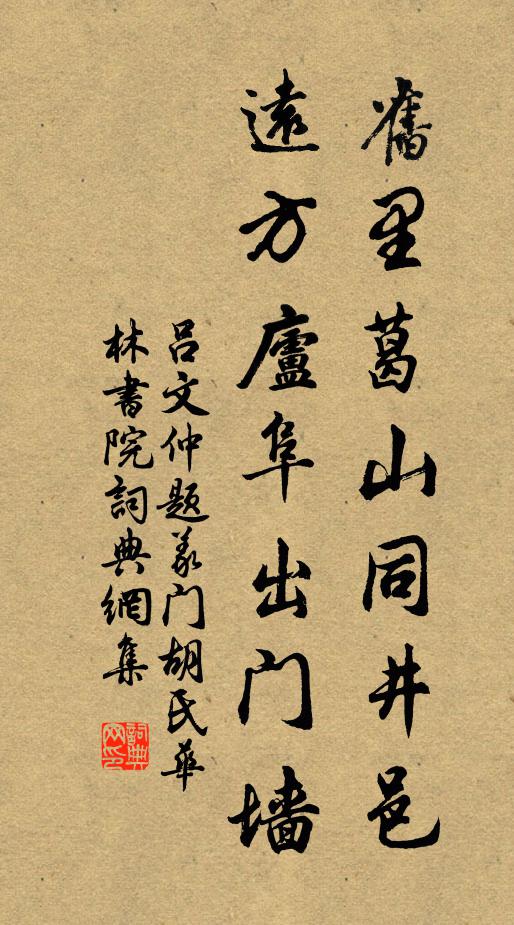 舊里葛山同井邑
遠方廬阜出门墻
吕文仲题義门胡氏華
林書院詞典網集
詞典
网印